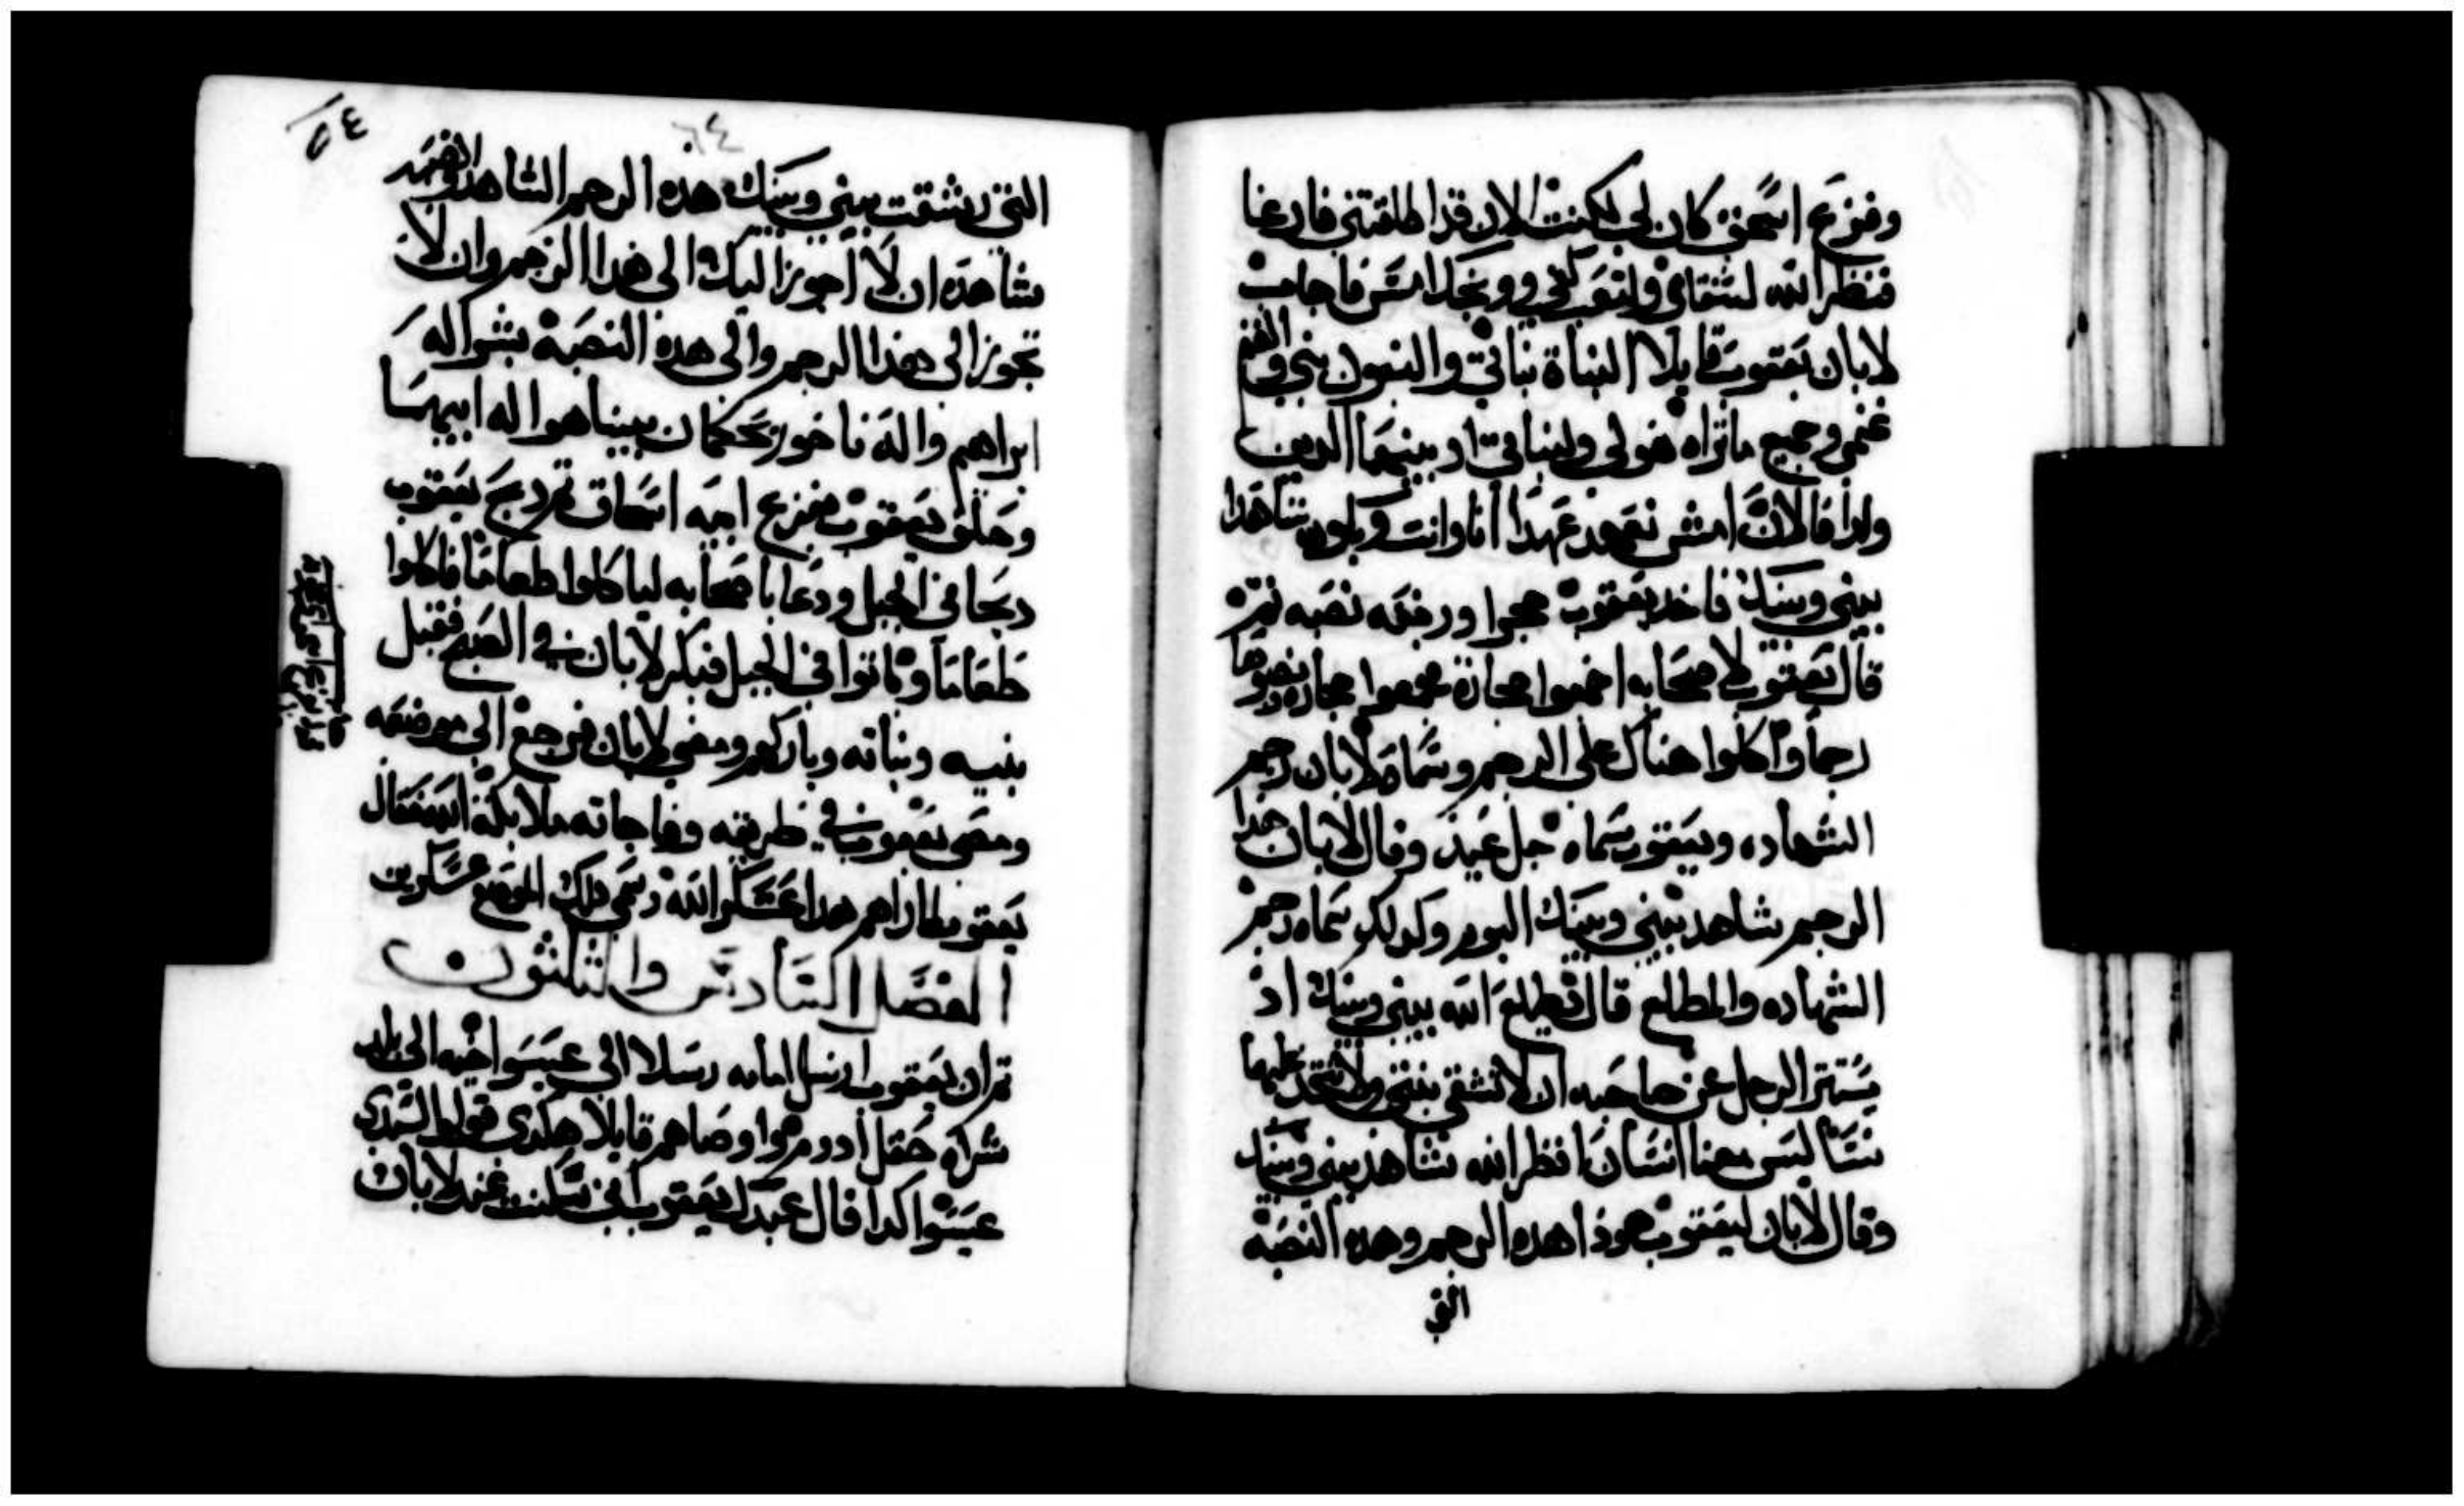 وفزع اسحق كان لي لكنت الان قد اطلقتني فارغا
فنظر الله لشقاي ولتعب كفي ووبخك امس فاجاب
لابان يعقوب قايلا البناة بناتي والبنون بني والغنم
غنمي وجميع ماتراه هو لي ولبناتي او بينهما الدين
ولدا فالان امش نعهد عهدا انا وانت ويكون شاهدا
بيني وبينك فاخد يعقوب حجرا ورفعه نصبه ثم
قال يعقوب لاصحابه اجمعوا حجارة فجمعوا حجاره وصيروها
رجما واكلوا هناك على الرجم وسماه لابان رجم
الشهاده ويعقوب سماه جلعيد وقال لابان هدا
الرجم شاهد بيني وبينك اليوم وكدلك سماه رجم
الشهاده والمطلع قال يطلع الله بيني وبينك اذ
يستتر الرجل عن صاحبه ان لاتشقي بنتي ولاتتخد عليهما
نسا ليس معنا انسان انظر الله شاهد بيني وبينك
وقال لابان ليعقوب هوذا هده الرجم وهده النصبة
التي
٥٤
٦٤
التي نشقت بيني وبينك هده الرجم الشاهد والنصبه
شاهده ان لا اجوز اليك الى هدا الرجم وان لا
تجوز الى هدا الرجم والى هده النصبة بشر اله
ابراهيم واله ناخور يحكمان بيننا هو اله ابيهما
وحلف يعقوب بفزع ابيه اسحاق ثم دبح يعقوب
دبحا في الجبل ودعا باصحابه لياكلوا طعاما فاكلوا
طعاما وباتوا في الجبل فبكر لابان في الصبح فقبل
بنيه وبناته وباركهم ومضي لابان فرجع الى موضعه
ومضى يعقوب في طريقه وفاجاته ملايكة الله فقال
يعقوب لما راهم هدا عسكر الله وسمي دلك الموضع عسكرين
الفصل السادس والثلثون
ثم ان يعقوب ارسل امامه رسلا الى عيسوا اخيه الى بلد
شراه حقل ادوم هوا وصاهم قايلا هكدى قولوا لسيدي
عيسوا كدا قال عبدك يعقوب اني سكنت عند لابان